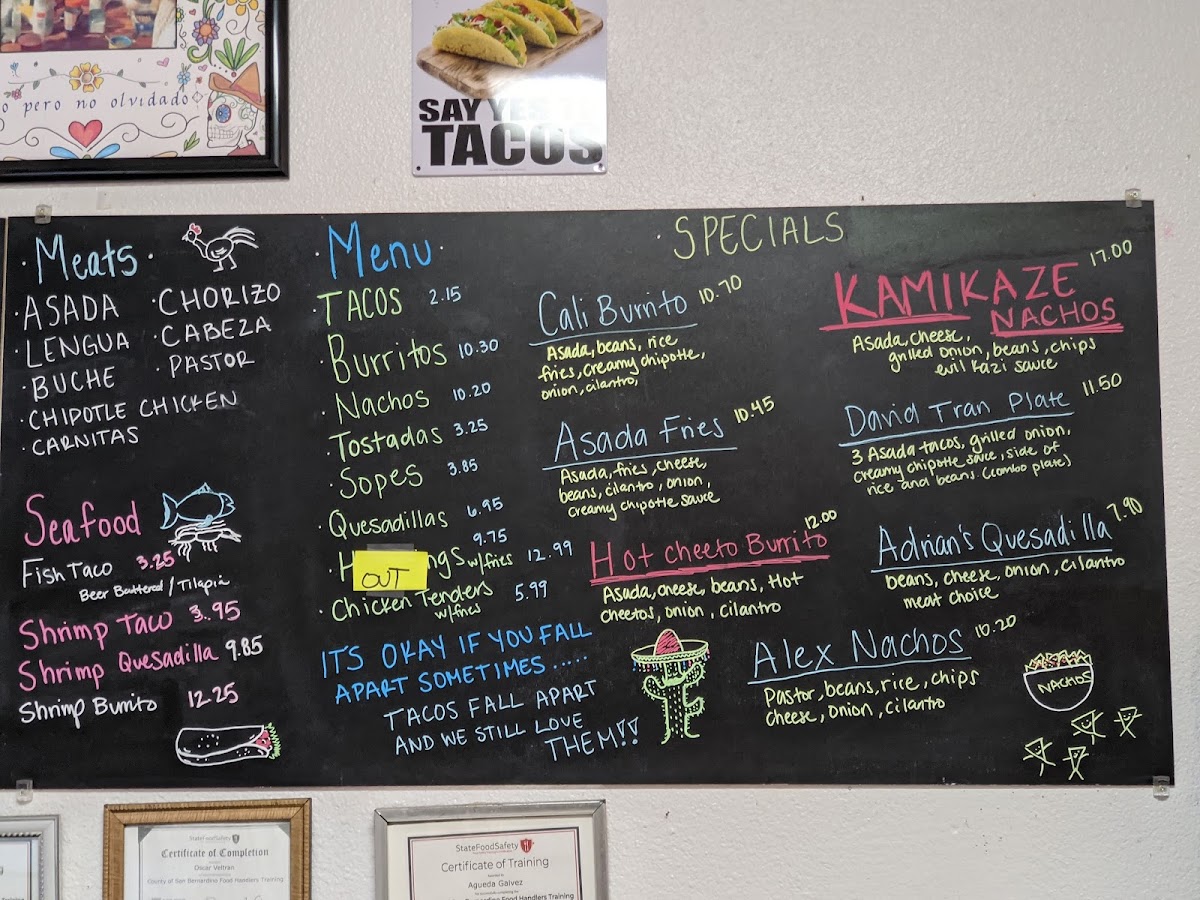 o pero no olvidado
SAY YES
TACOS
· Meats ·
· ASADA
· LENGUA
· BUCHE
· CHIPOTLE CHICKEN
· CARNITAS
· CHORIZO
· CABEZA
· PASTOR
Seafood
Fish Taco 3.25
Beer Battered / Tilapia
Shrimp Taco 3.95
Shrimp Quesadilla 9.85
Shrimp Burrito 12.25
· Menu ·
· TACOS 2.15
· Burritos 10.30
· Nachos 10.20
· Tostadas 3.25
· Sopes 3.85
· Quesadillas 6.95
9.75
· H OUT ngs w/fries 12.99
· Chicken Tenders 5.99
w/fries
IT'S OKAY IF YOU FALL
APART SOMETIMES .....
TACOS FALL APART
AND WE STILL LOVE
THEM!!
· SPECIALS
Cali Burrito 10.70
Asada, beans, rice
fries, creamy chipotle,
onion, cilantro,
Asada Fries 10.45
Asada, fries, cheese,
beans, cilantro, onion,
creamy chipotle sauce
Hot Cheeto Burrito 12.00
Asada, cheese, beans, Hot
cheetos, onion, cilantro
KAMIKAZE 17.00
NACHOS
Asada, cheese,
grilled onion, beans, chips
evil kazi sauce
David Tran Plate 11.50
3 Asada tacos, grilled onion,
creamy chipotle sauce, side of
rice and beans. (combo plate)
Adrian's Quesadilla 7.90
beans, cheese, onion, cilantro
meat choice
Alex Nachos 10.20
Pastor, beans, rice, chips
cheese, onion, cilantro
NACHOS
StateFoodSafety
Certificate of Completion
Oscar Veltran
County of San Bernardino Food Handlers Training
StateFoodSafety
Certificate of Training
Agueda Galvez
Bernardino Food Handlers Training